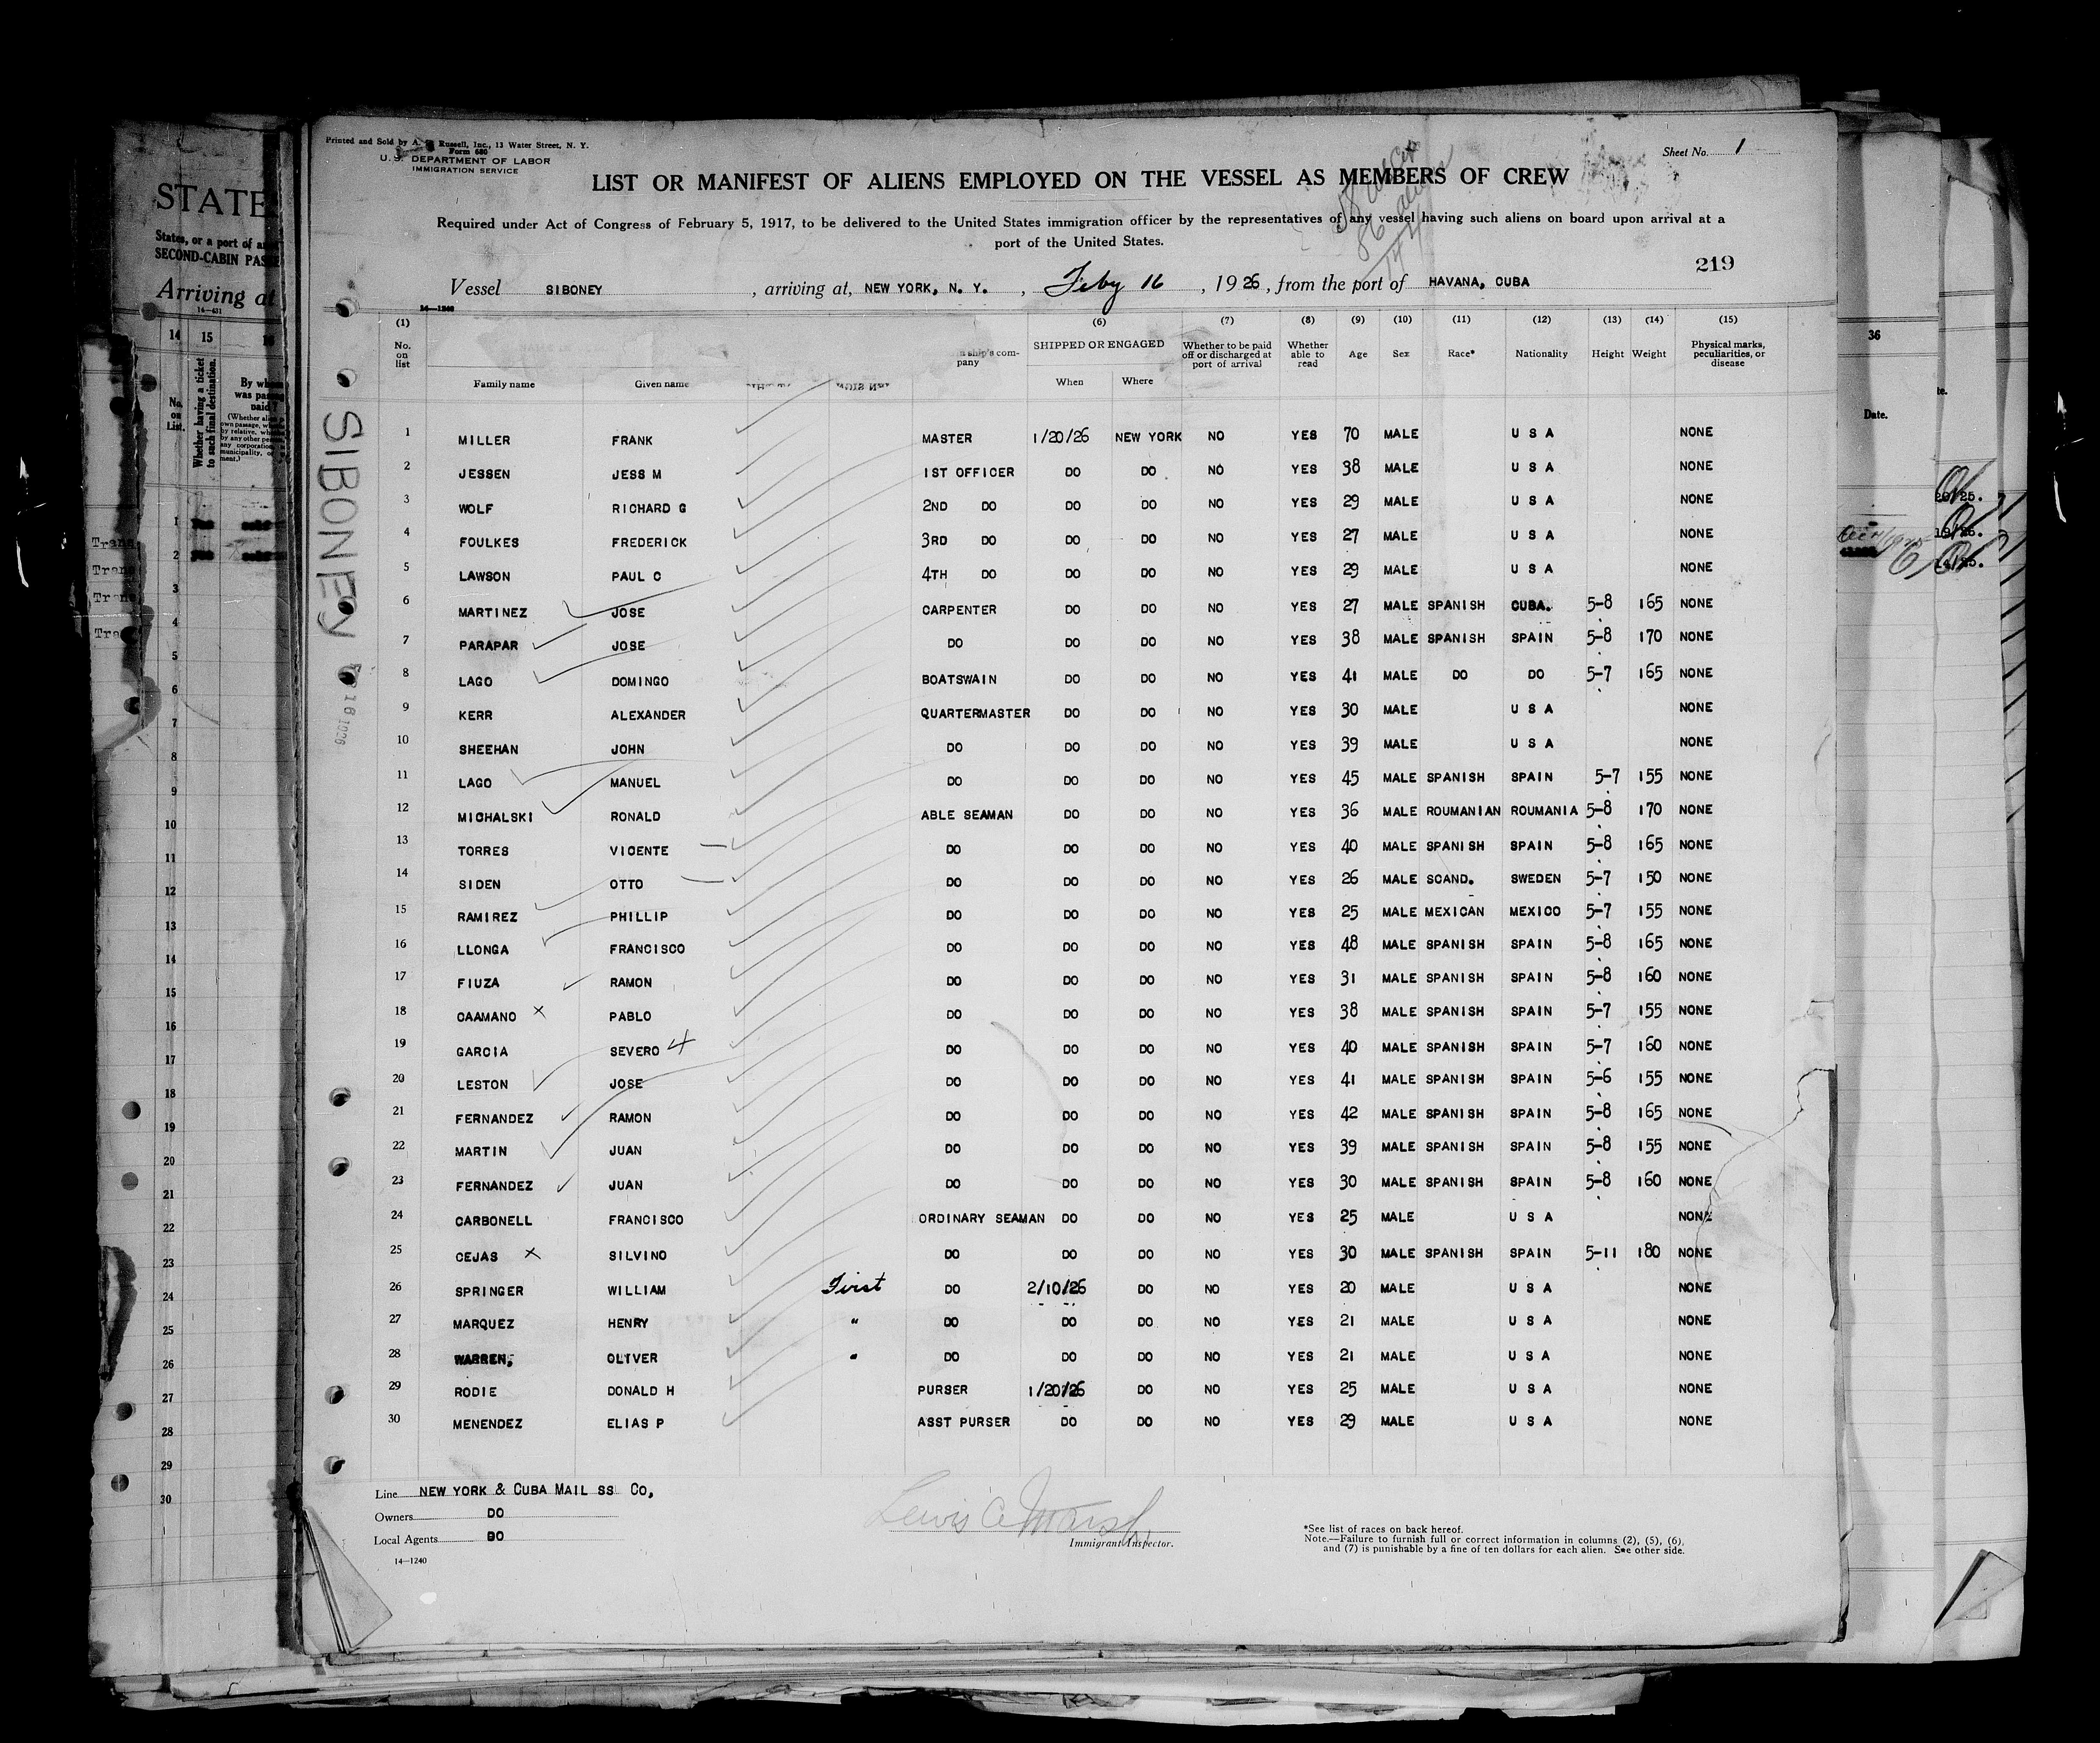 Printed and Sold by A. Russell, Inc., 13 Water Street, N. Y.
Form 680
U. S. DEPARTMENT OF LABOR
IMMIGRATION SERVICE
Sheet No. 1
LIST OR MANIFEST OF ALIENS EMPLOYED ON THE VESSEL AS MEMBERS OF CREW
Required under Act of Congress of February 5, 1917, to be delivered to the United States immigration officer by the representatives of any vessel having such aliens on board upon arrival at a
port of the United States.
219
Vessel SIBONEY, arriving at, NEW YORK, N. Y., Feby 16, 1926, from the port of HAVANA, CUBA
14—1240
(1) (6) (7) (8) (9) (10) (11) (12) (13) (14) (15)
No. on list Family name Given name ship's company SHIPPED OR ENGAGED When Where Whether to be paid off or discharged at port of arrival Whether able to read Age Sex Race* Nationality Height Weight Physical marks, peculiarities, or disease
1 MILLER FRANK MASTER 1/20/26 NEW YORK NO YES 70 MALE U S A NONE
2 JESSEN JESS M 1ST OFFICER DO DO NO YES 38 MALE U S A NONE
3 WOLF RICHARD G 2ND DO DO DO NO YES 29 MALE U S A NONE
4 FOULKES FREDERICK 3RD DO DO DO NO YES 27 MALE U S A NONE
5 LAWSON PAUL C 4TH DO DO DO NO YES 29 MALE U S A NONE
6 MARTINEZ JOSE CARPENTER DO DO NO YES 27 MALE SPANISH CUBA. 5-8 165 NONE
7 PARAPAR JOSE DO DO DO NO YES 38 MALE SPANISH SPAIN 5-8 170 NONE
8 LAGO DOMINGO BOATSWAIN DO DO NO YES 41 MALE DO DO 5-7 165 NONE
9 KERR ALEXANDER QUARTERMASTER DO DO NO YES 30 MALE U S A NONE
10 SHEEHAN JOHN DO DO DO NO YES 39 MALE U S A NONE
11 LAGO MANUEL DO DO DO NO YES 45 MALE SPANISH SPAIN 5-7 155 NONE
12 MICHALSKI RONALD ABLE SEAMAN DO DO NO YES 36 MALE ROUMANIAN ROUMANIA 5-8 170 NONE
13 TORRES VICENTE DO DO DO NO YES 40 MALE SPANISH SPAIN 5-8 165 NONE
14 SIDEN OTTO DO DO DO NO YES 26 MALE SCAND. SWEDEN 5-7 150 NONE
15 RAMIREZ PHILLIP DO DO DO NO YES 25 MALE MEXICAN MEXICO 5-7 155 NONE
16 LLONGA FRANCISCO DO DO DO NO YES 48 MALE SPANISH SPAIN 5-8 165 NONE
17 FIUZA RAMON DO DO DO NO YES 31 MALE SPANISH SPAIN 5-8 160 NONE
18 CAAMANO X PABLO DO DO DO NO YES 38 MALE SPANISH SPAIN 5-7 155 NONE
19 GARCIA SEVERO DO DO DO NO YES 40 MALE SPANISH SPAIN 5-7 160 NONE
20 LESTON JOSE DO DO DO NO YES 41 MALE SPANISH SPAIN 5-6 155 NONE
21 FERNANDEZ RAMON DO DO DO NO YES 42 MALE SPANISH SPAIN 5-8 165 NONE
22 MARTIN JUAN DO DO DO NO YES 39 MALE SPANISH SPAIN 5-8 155 NONE
23 FERNANDEZ JUAN DO DO DO NO YES 30 MALE SPANISH SPAIN 5-8 160 NONE
24 CARBONELL FRANCISCO ORDINARY SEAMAN DO DO NO YES 25 MALE U S A NONE
25 CEJAS X SILVINO DO DO DO NO YES 30 MALE SPANISH SPAIN 5-11 180 NONE
26 SPRINGER WILLIAM First DO 2/10/26 DO NO YES 20 MALE U S A NONE
27 MARQUEZ HENRY " DO DO DO NO YES 21 MALE U S A NONE
28 WARREN, OLIVER " DO DO DO NO YES 21 MALE U S A NONE
29 RODIE DONALD H PURSER 1/20/26 DO NO YES 25 MALE U S A NONE
30 MENENDEZ ELIAS P ASST PURSER DO DO NO YES 29 MALE U S A NONE
SIBONEY
16 1926
Line NEW YORK & CUBA MAIL SS CO,
Owners DO
Local Agents DO
14—1240
Lewis C Marsh
Immigrant Inspector.
*See list of races on back hereof.
Note.—Failure to furnish full or correct information in columns (2), (5), (6),
and (7) is punishable by a fine of ten dollars for each alien. See other side.
STATE
States, or a port of
SECOND-CABIN
Arriving at
14 15
No. on List.
Whether having a ticket to such final destination.
36
Date.